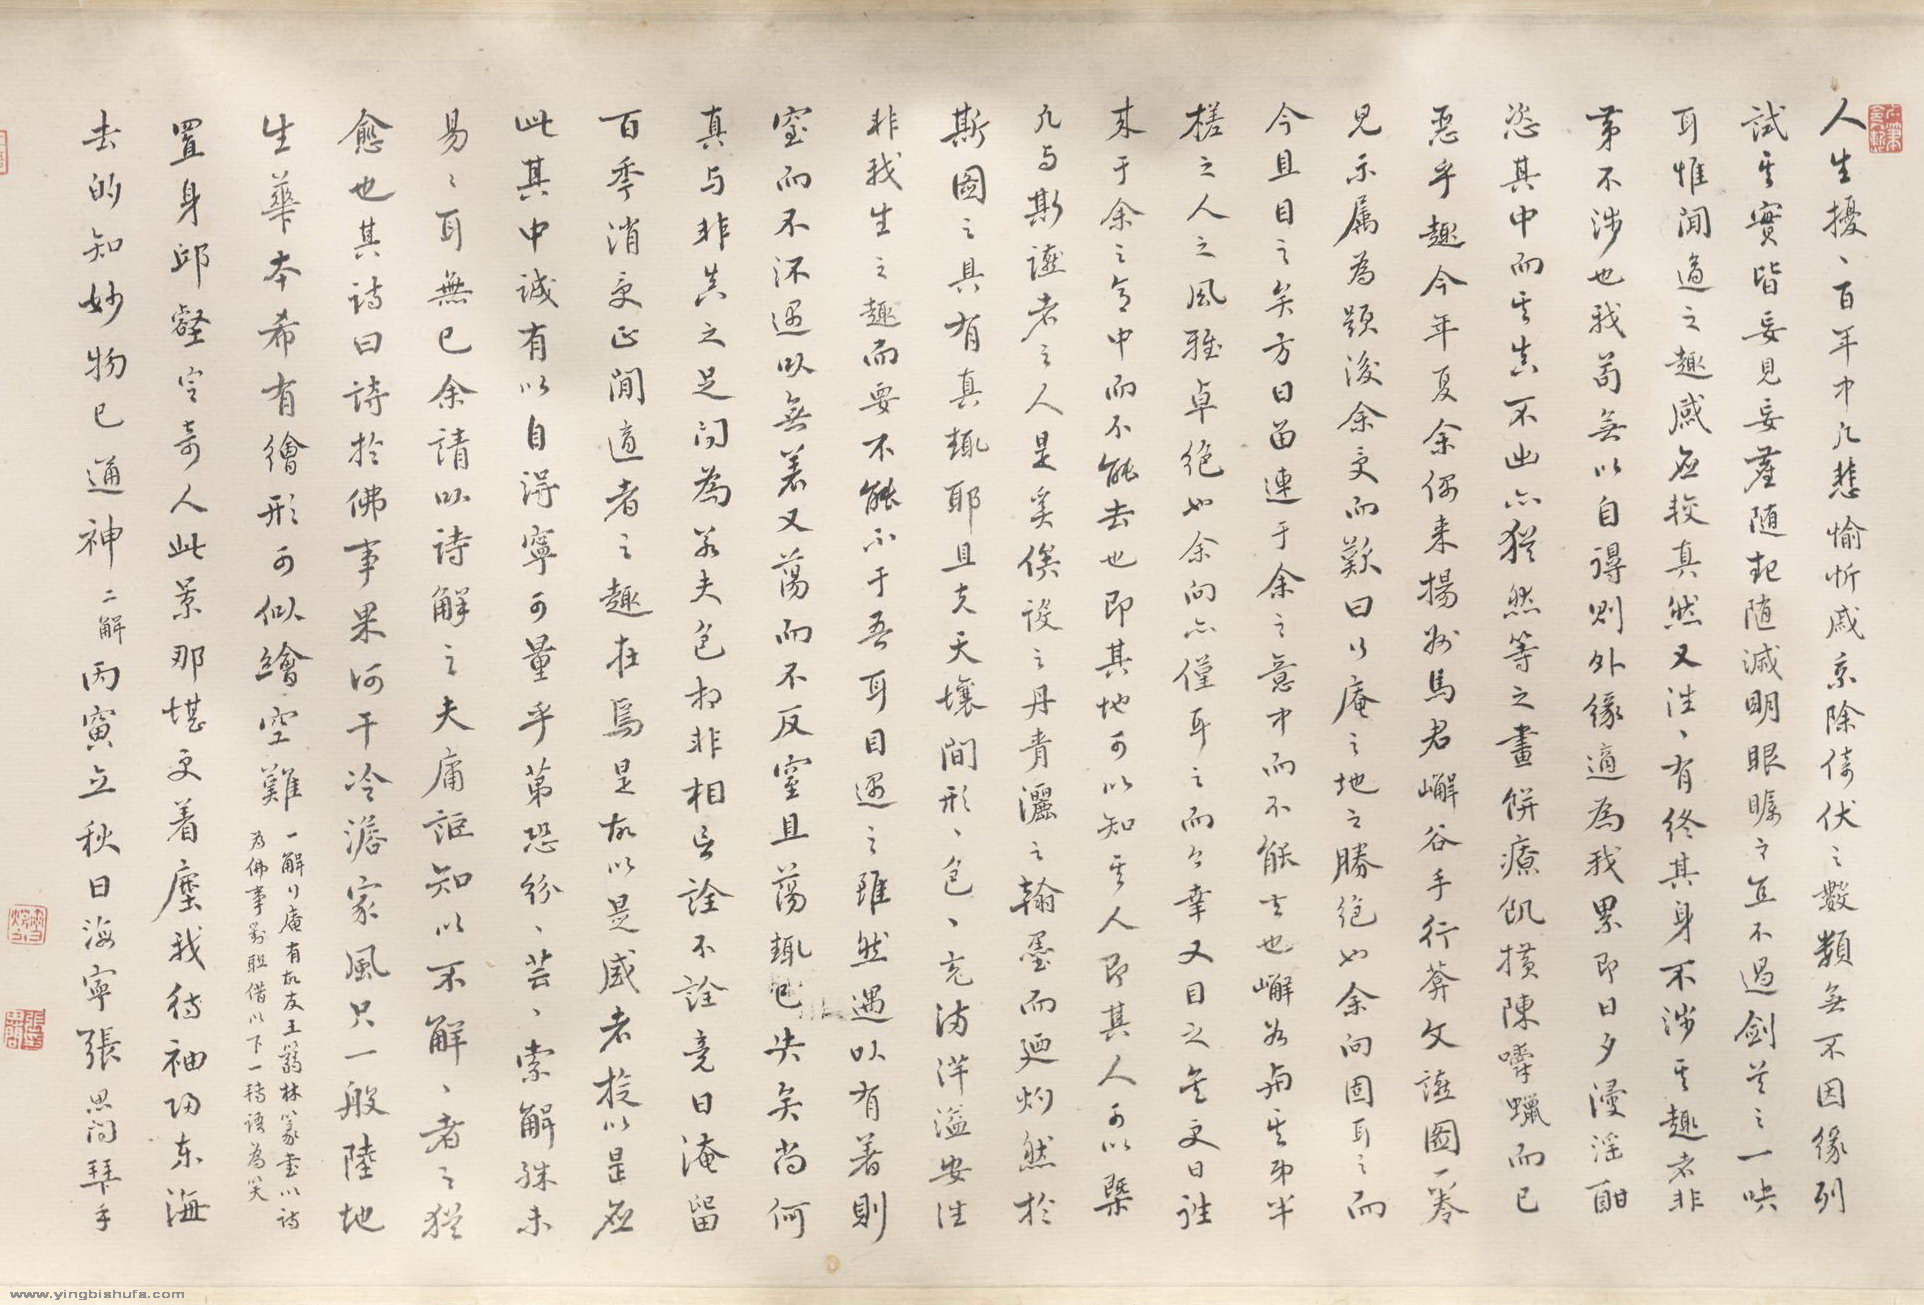 人生擾、百年中凡悲愉忻戚乘除倚伏之數類無不因緣列
試其實皆妄見妄塵隨起隨滅明眼矚之直不過劍首之一吷
耳惟閒適之趣感應較真然又往、有終其身不涉其趣者非
第不涉也我苟無以自得則外緣適為我累即日夕漫淫酣
恣其中而其真不出亦猶然等之畫餅療飢橫陳嚼蠟而已
惡乎趣今年夏余偶来揚州馬君嶰谷手行菴文讌圖一卷
見示属為題後余受而歎曰行庵之地之勝絶如余向固耳之而
今且目之矣方日留連于余之意中而不能去也嶰谷與其弟半
槎之人之風雅卓絶如余向亦僅耳之而今幸又目之無更日往
来于余之意中而不能去也即其地可以知其人即其人可以槩
凡与斯讌者之人是奚俟設之丹青灑之翰墨而廼灼然於
斯圖之具有真趣耶且夫天壤間形、色、充沛洋溢安往
非我生之趣而要不能不于吾耳目遇之雖然遇以有着則
窒而不遇以無着又蕩而不反窒且蕩趣已失矣尚何
真与非真之足问為若夫色相非相言詮不詮竟日淹留
百季消受正閒適者之趣在焉是故以是感者於以是應
此其中誠有以自得寧可量乎第恐紛、芸、索解殊未
易、耳無已余請以詩解之夫庸詎知以不解、者之猶
愈也其詩曰詩於佛事果何干冷澹家風只一般陸地
生華本希有繪形可似繪空難 一解行庵有故友王蒻林篆書以詩
為佛事對聯借以下一轉語為笑
置身邱壑定奇人此景那堪更着塵我待袖歸东海
去的知妙物已通神 二解 丙寅立秋日海寧張思问拜手
www.yingbishufa.com